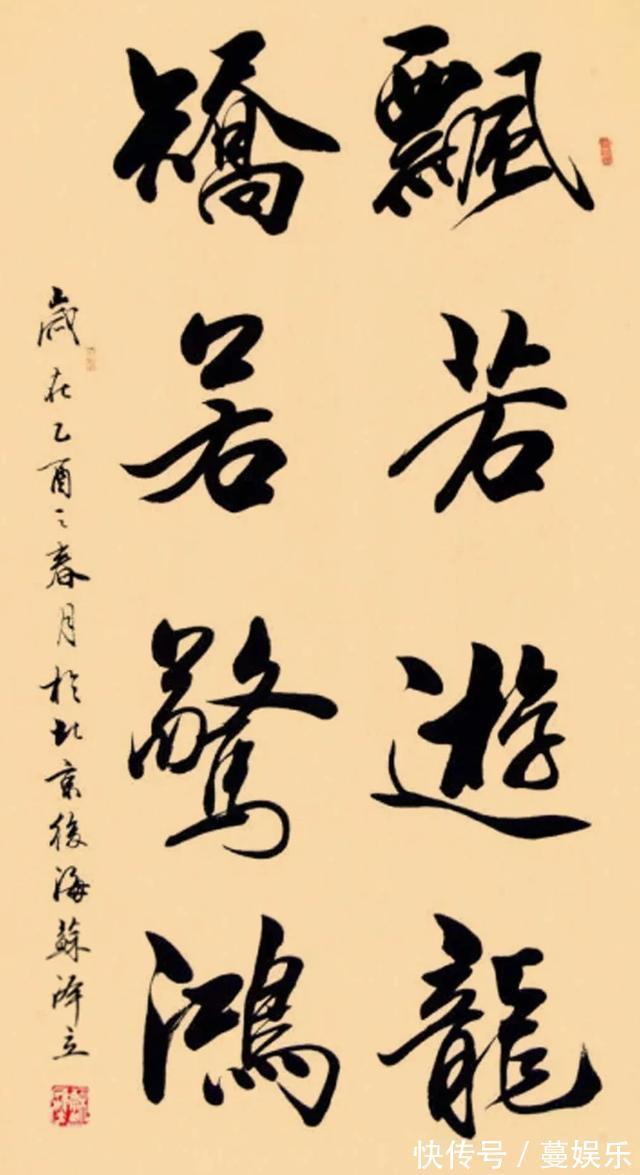 飄若遊龍
矯若驚鴻
歲在乙酉之春月於北京後海蘇澤立
快传号 / 蔓娱乐